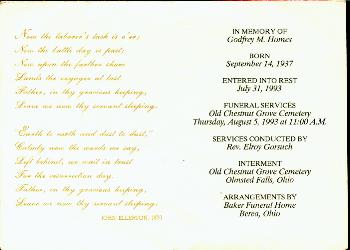 Now the laborer's task is o'er;
Now the battle day is past;
Now upon the farther shore
Lands the voyager at last.
Father, in thy gracious keeping,
Leave we now thy servant sleeping.
"Earth to earth and dust to dust,"
Calmly now the words we say,
Left behind, we wait in trust
For the resurrection day.
Father, in thy gracious keeping,
Leave we now thy servant sleeping.
JOHN ELLERTON,
IN MEMORY OF
Godfrey M. Homes
BORN
September 14, 1937
ENTERED INTO REST
July 31, 1993
FUNERAL SERVICES
Old Chestnut Grove Cemetery
Thursday, August 5, 1993 at 11:00 A.M.
SERVICES CONDUCTED BY
Rev. Elroy Gorsuch
INTERMENT
Old Chestnut Grove Cemetery
Olmsted Falls, Ohio
ARRANGEMENTS BY
Baker Funeral Home
Berea, Ohio